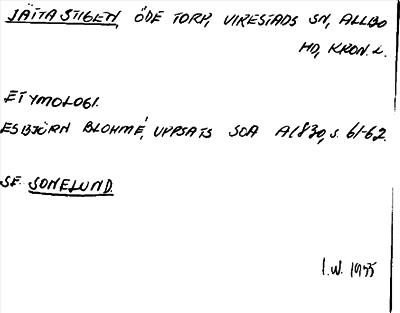 JÄTTASTIGEN, ÖDE TORP, VIRESTADS SN, ALLBO
HD, KRON. L.
ETYMOLOGI.
ESBJÖRN BLOHMÉ, UPPSATS SOA A1830, S. 61-62.
SE SONELUND.
I.W. 1975